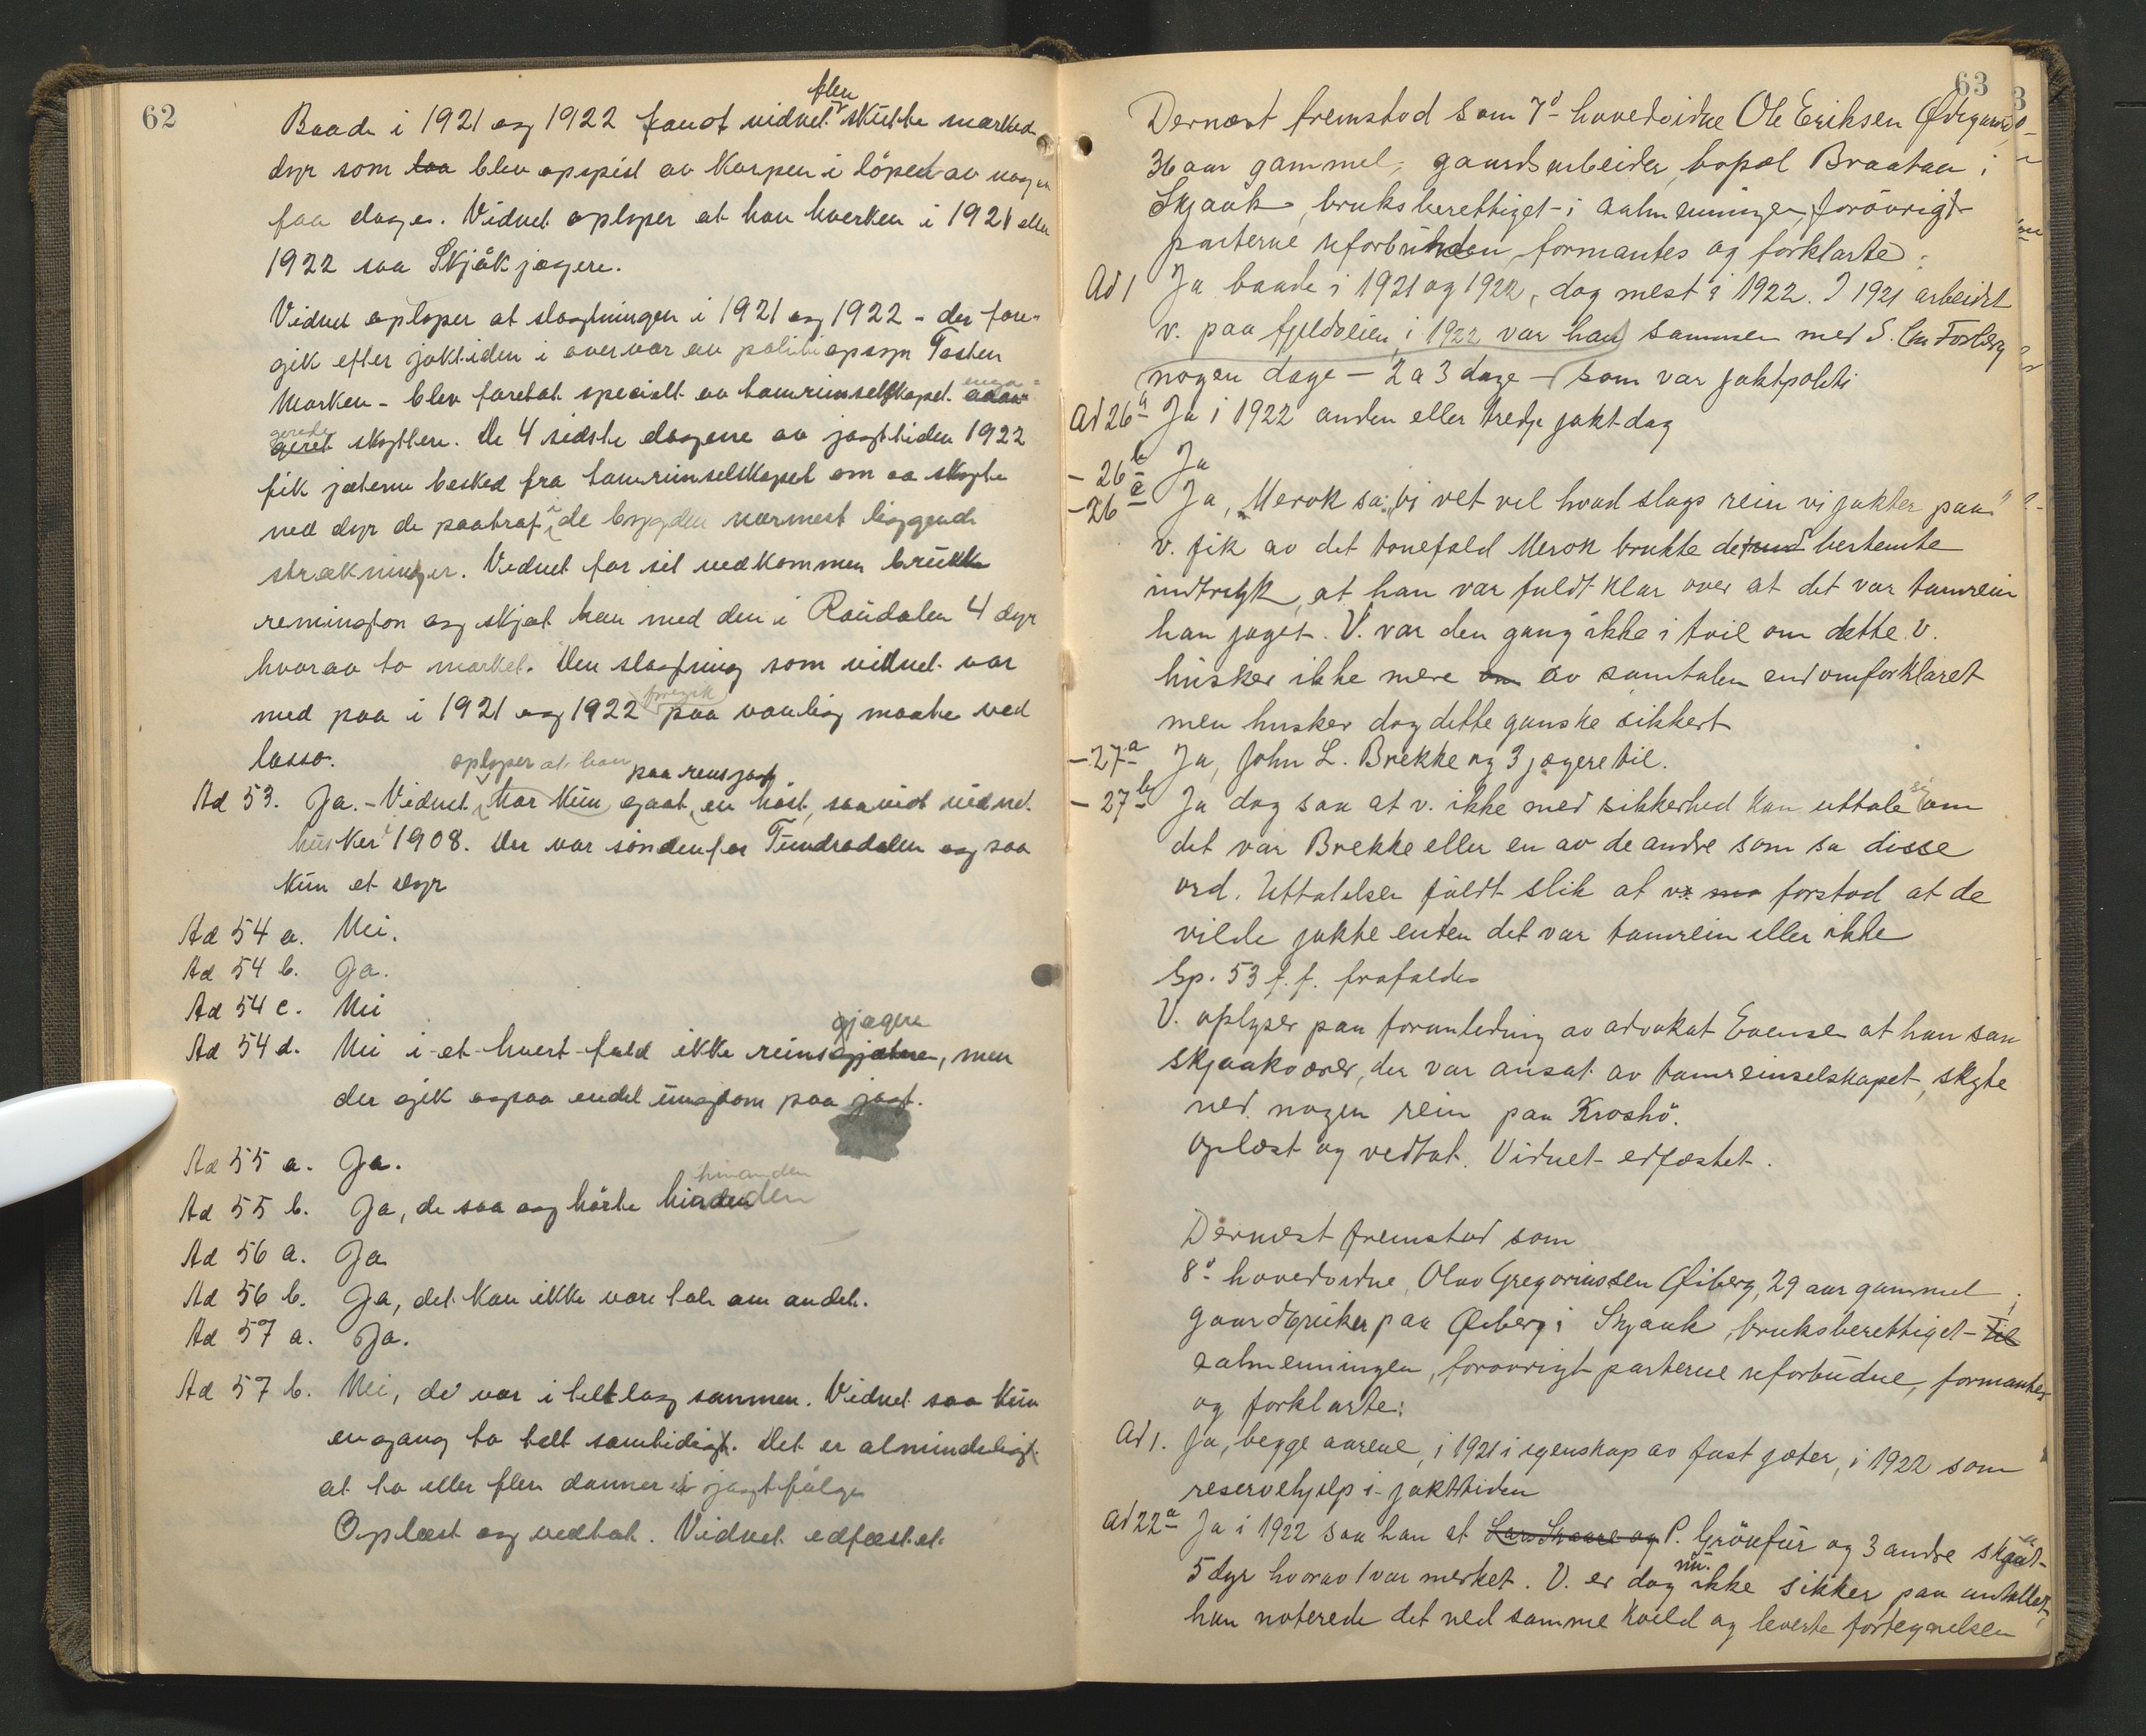 62
flere
Baade i 1921 og 1922 fandt vidnet skutte merkede
dyr som laa blev opspist av korpen i löpet av nogen
faa dage. Vidnet oplyser at han hverken i 1921 eller
1922 saa Skjåkjægere.
Vidnet oplyser at slagtningen i 1921 og 1922 - der fore-
gik efter jaktiden i overvær av politiopsyn Tosten
Marken - blev foretat specielt av tamreinselskapet enga-
gerede skyttere. De 4 sidste dagene av jagttiden 1922
fik jæterne besked fra tamreinselskapet om aa skyte
ned dyr de paatraf i de bygden nærmest liggende
strækninger. Vidnet for sit vedkommen brukte
remington og skjøt han med den i Raudalen 4 dyr
hvorav to merket. Den slagtning som vidnet var
med paa i 1921 og 1922 foregik paa vanlig maate ved
lasso.
oplyser at han paa rensjagt
Ad 53. Ja. - Vidnet har kun gaat en höst, saavidt vidnet
husker i 1908. Der var söndenfor Tundradalen og saa
kun et dyr
Ad 54 a. Nei.
Ad 54 b. Ja.
Ad 54 c. Nei
jægere
Ad 54 d. Nei i et hvert fald ikke reinsgjætere, men
der gik ogsaa endel ungdom paa jagt.
Ad 55 a. Ja.
hinanden
Ad 55 b. Ja, de saa og hörte hinanden
Ad 56 a. Ja
Ad 56 b. Ja, det kan ikke være tale om andet.
Ad 57 a. Ja.
Ad 57 b. Nei, de var i teltlag sammen. Vidnet saa kun
engang to telt samtidigt. Det er almindeligt
at to eller flere danner et jagtfölge
Oplæst og vedtat. Vidnet edfæstet.
63
Dernæst fremstod som 7d hovedvidne Ole Eriksen Ødegaard,
36 aar gammel, gaardsarbeider, bopæl Braataa i
Skjaak, bruksberettiget i aalmenningen, forövrigt
parterne uforbunden, formantes og forklarte:
Ad 1 Ja baade i 1921 og 1922, dog mest i 1922. I 1921 arbeidet
v. paa fjeldveien, i 1922 var han sammen med S. Chr Forberg
nogen dage - 2 a 3 dage - som var jaktpoliti
Ad 26a Ja i 1922 anden eller tredje jaktdag
- 26b Ja
- 26c Ja, Merok sa: "vi vet vel hvad slags rein vi jakter paa"
v. fik av det tonefald Merok brukte det bestemte
indtryk, at han var fuldt klar over at det var tamrein
han jaget. V. var den gang ikke i tvil om dette. V.
husker ikke mere om av samtalen end omforklaret
men husker dog dette ganske sikkert
- 27a Ja, John L. Brekke og 3 jægere til.
- 27b Ja dog saa at v. ikke med sikkerhed kan uttale sig om
det var Brekke eller en av de andre som sa disse
ord. Uttalelsen faldt slik at v. forstod at de
vilde jakte enten det var tamrein eller ikke
Sp. 53 f. f. frafaldes
V. oplyser paa foranledning av advokat Evensen at han saa
skjaakværer, der var ansat av tamreinselskapet, skyte
ned nogen rein paa Kroshö.
Oplæst og vedtat. Vidnet edfæstet.
Dernæst fremstod som
8d hovedvidne, Olav Gregoriussen Øiberg, 29 aar gammel,
gaardbruker paa Øiberg i Skjaak, bruksberettiget til
aalmenningen, forøvrigt parterne uforbudne, formantes
og forklarte:
Ad 1. Ja, begge aarene, i 1921 i egenskap av fast gjæter, i 1922 som
reservehjelp i jakttiden
Ad 22a Ja i 1922 saa han at Lars Skaare og P. Grönfur og 3 andre skjöt
5 dyr hvorav 1 var merket. V. er dog nu ikke sikker paa antallet,
han noterede det ned samme kveld og leverte fortegnelsen